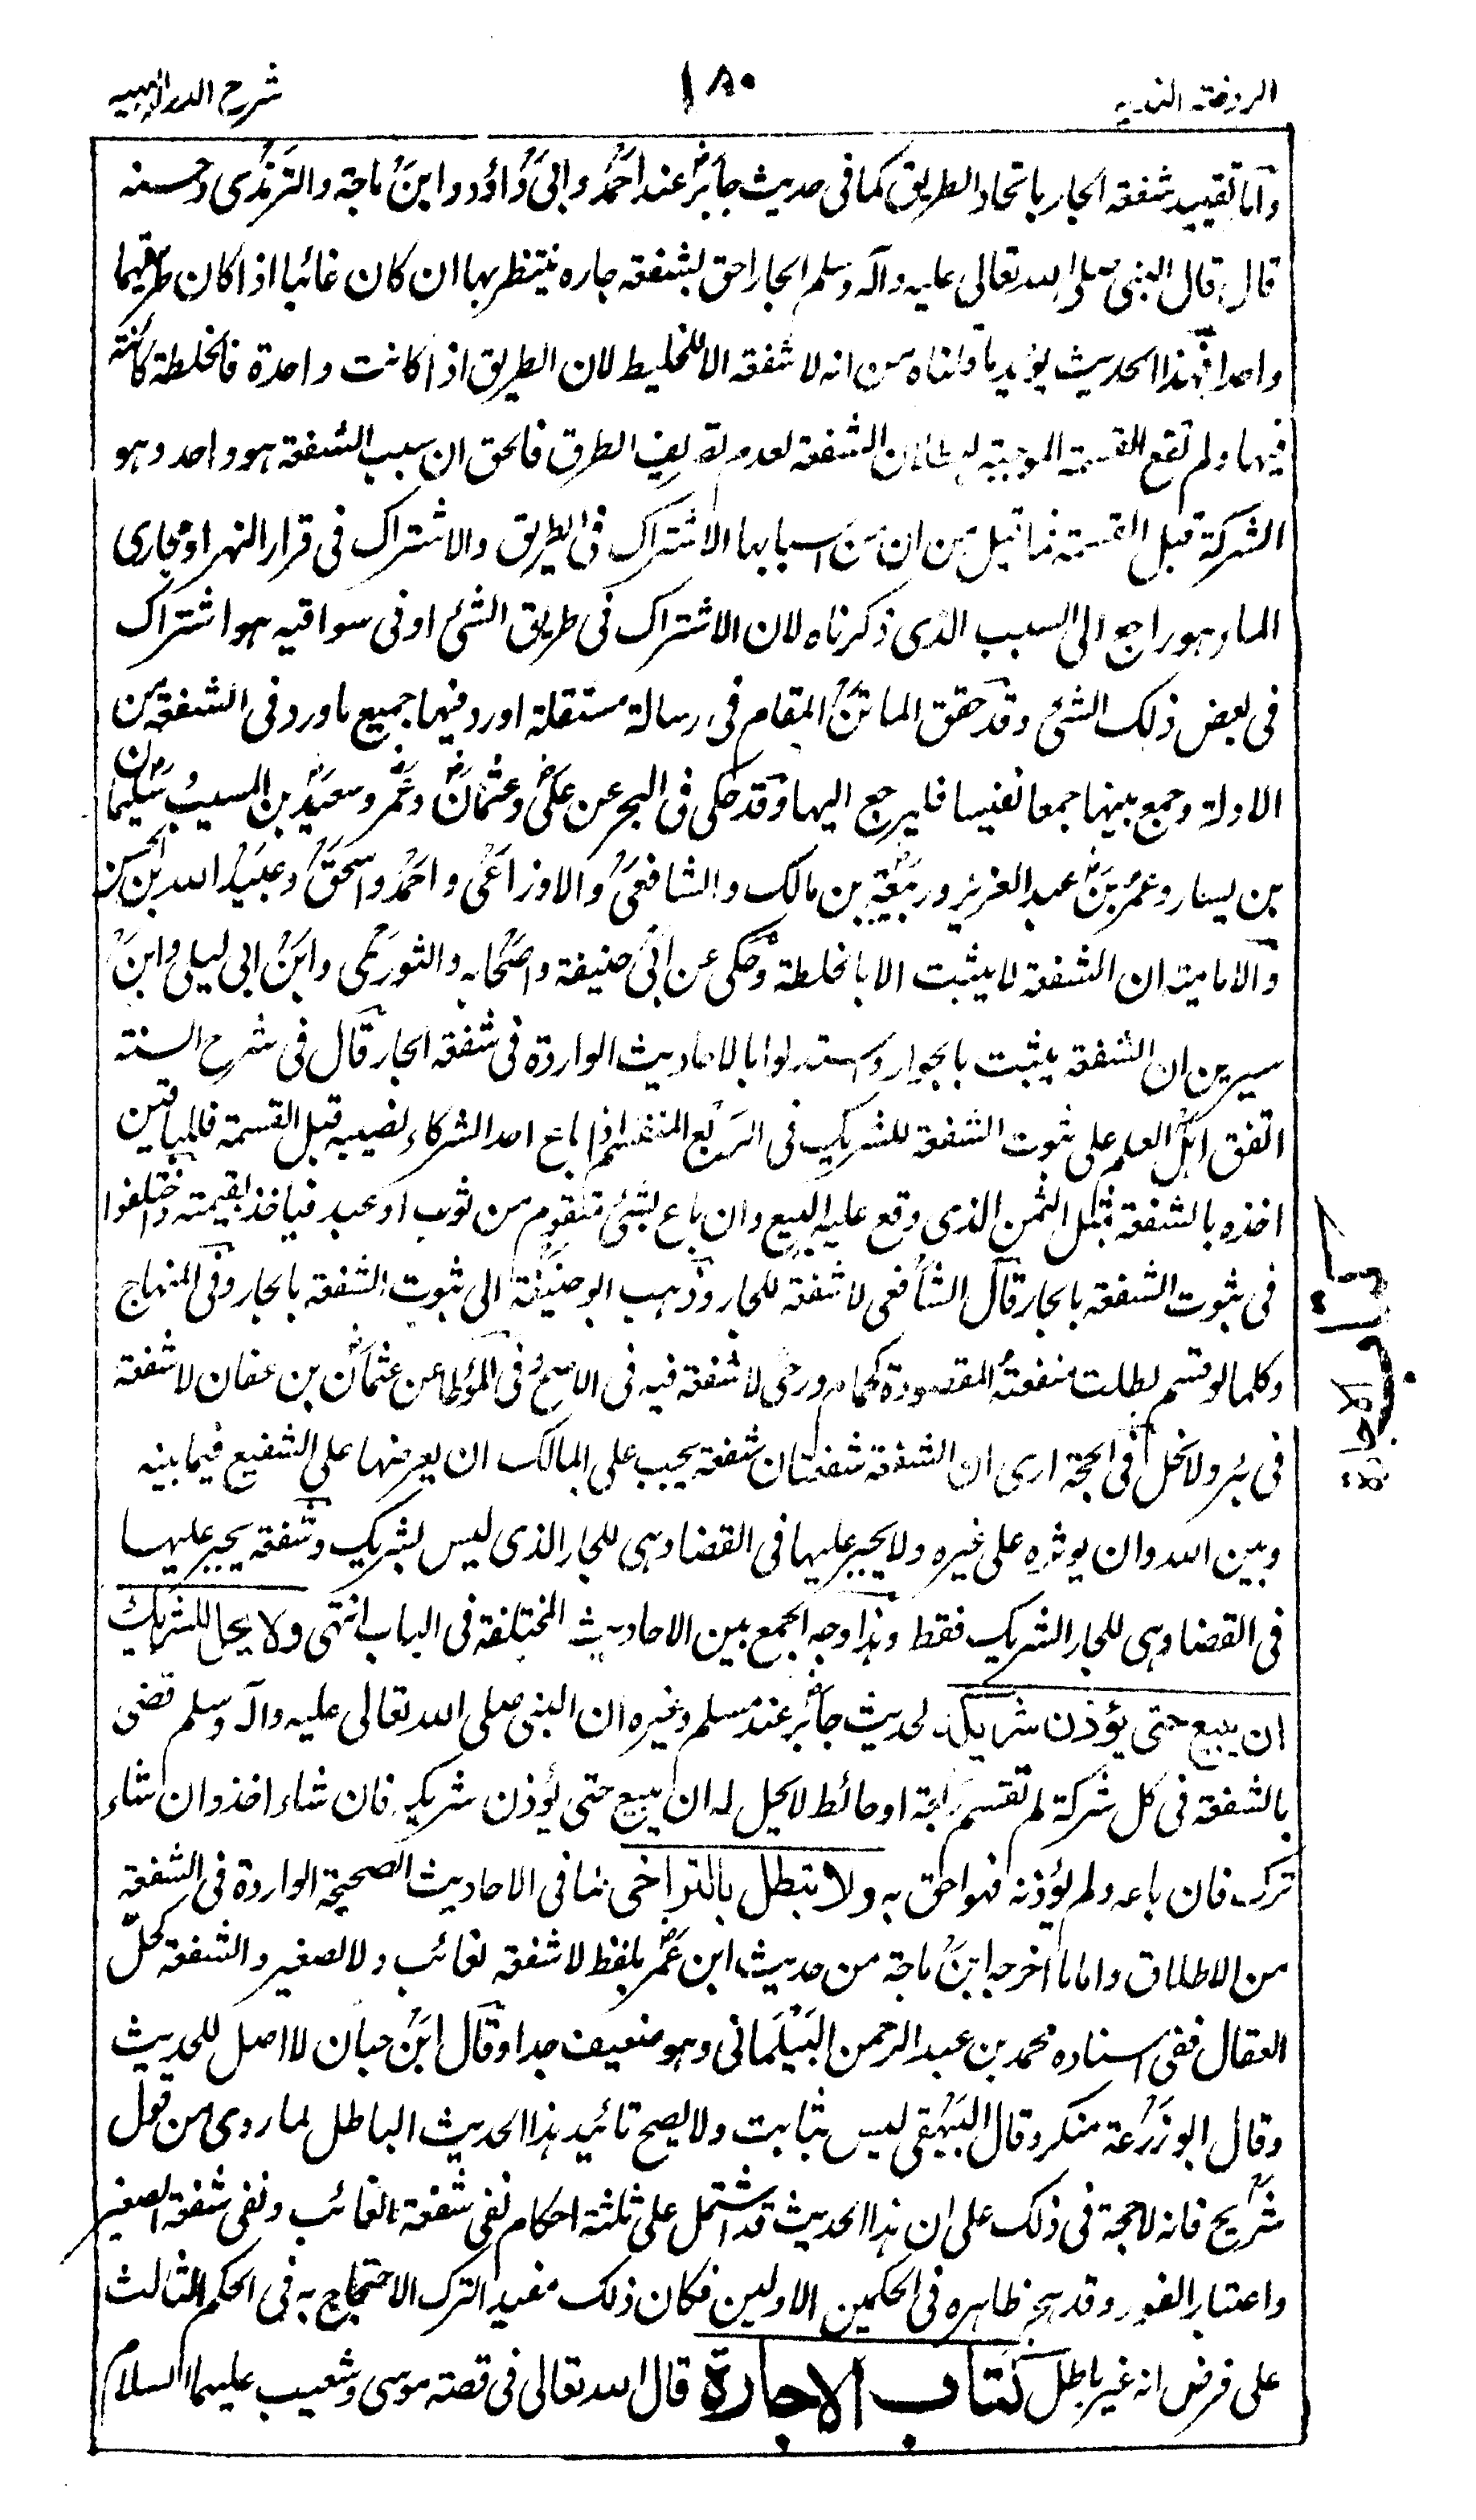 الروضة الندية
١٨٠
شرح الدرر البهية
وأما تقييد شفعة الجار باتحاد الطريق كما فى حديث جابرؓ عند احمدؒ وابىؒ داؤد وابنؒ ماجة والترمذىؒ وحسنه
قال قال النبى صلى الله تعالى عليه وآله وسلم الجار احق بشفعة جاره ينتظر بها ان كان غائبا اذا كان طريقهما
واحدا فهذا الحديث يؤيد ما قلناه من انه لا شفعة الا للخليط لان الطريق اذا كانت واحدة فالخلطة كائنة
فيها ولم تقع القسمة الموجبة لبطلان الشفعة لعدم تصريف الطرق فالحق ان سبب الشفعة هو واحد وهو
الشركة قبل القسمة فما قيل من ان من اسبابها الاشتراك فى الطريق والاشتراك فى قرار النهر او مجارى
الماء وهو راجع الى السبب الذى ذكرناه لان الاشتراك فى طريق الشئ او فى سواقيه هو اشتراك
فى بعض ذلك الشئ وقد حقق الماتنؒ المقام فى رسالة مستقلة اورد فيها جميع ما ورد فى الشفعة من
الادلة وجمع بينها جمعا نفيسا فليرجع اليها وقد حكى فى البحر عن علىؓ وعثمانؓ وعمرؓ وسعيدؒ بن المسيب وسليمان
بن يسار وعمرؒ بن عبد العزيز وربيعةؒ بن مالك والشافعىؒ والاوزاعىؒ واحمدؒ واسحقؒ وعبيدؒ الله بن الحسن
والامامية ان الشفعة لا يثبت الا بالخلطة وحكى عن ابىؒ حنيفة واصحابه والثورىؒ وابنؒ ابى ليلى وابنؒ
سيرين ان الشفعة يثبت بالجوار واستدلوا بالاحاديث الواردة فى شفعة الجار قال فى شرح السنة
اتفق اهل العلم على ثبوت الشفعة للشريك فى الربع المنقسم اذا باع احد الشركاء نصيبه قبل القسمة فللباقين
اخذه بالشفعة بمثل الثمن الذى وقع عليه البيع وان باع بشئ متقوم من ثوب او عبد فياخذ بقيمته واختلفوا
فى ثبوت الشفعة بالجار قال الشافعى لا شفعة للجار وذهب ابو حنيفة الى ثبوت الشفعة بالجار وفى المنهاج
وكلما لو قسم بطلت منفعته المقصودة كحمام ورحى لا شفعة فيه فى الاصح فى المؤطا عن عثمانؓ بن عفان لا شفعة
فى بئر ولا نخل فى الحجة ارى ان الشفعة شفعتان شفعة يجب على المالك ان يعرضها على الشفيع فيما بينه
وبين الله وان يوثره على غيره ولا يجبر عليها فى القضاء وهى للجار الذى ليس بشريك وشفعة يجبر عليها
فى القضاء وهى للجار الشريك فقط وهذا وجه الجمع بين الاحاديث المختلفة فى الباب انتهى ولا يحل للشريك
ان يبيع حتى يؤذن شريكه لحديث جابرؓ عند مسلم وغيره ان النبى صلى الله تعالى عليه وآله وسلم قضى
بالشفعة فى كل شركة لم تقسم ربعة او حائط لا يحل له ان يبيع حتى يؤذن شريكه فان شاء اخذ وان شاء
ترك فان باعه ولم يؤذنه فهو احق به ولا تبطل بالتراخى لما فى الاحاديث الصحيحة الواردة فى الشفعة
من الاطلاق واما ما اخرجه ابنؒ ماجة من حديث ابن عمرؓ بلفظ لا شفعة لغائب ولا لصغير والشفعة كحل
العقال ففى اسناده محمد بن عبد الرحمن البيلمانى وهو ضعيف جدا وقال ابنؒ حبان لا اصل للحديث
وقال ابو زرعة منكر وقال البيهقى ليس بثابت ولا يصح تائيد هذا الحديث الباطل بما روى من قول
شريح فانه لا حجة فى ذلك على ان هذا الحديث قد اشتمل على ثلثة احكام نفى شفعة الغائب ونفى شفعة الصغير
واعتبار الفور وقد هجر ظاهره فى الحكمين الاولين فكان ذلك مفيدا لترك الاحتجاج به فى الحكم الثالث
على فرض انه غير باطل كتاب الاجارة قال الله تعالى فى قصة موسى وشعيب عليهما السلام